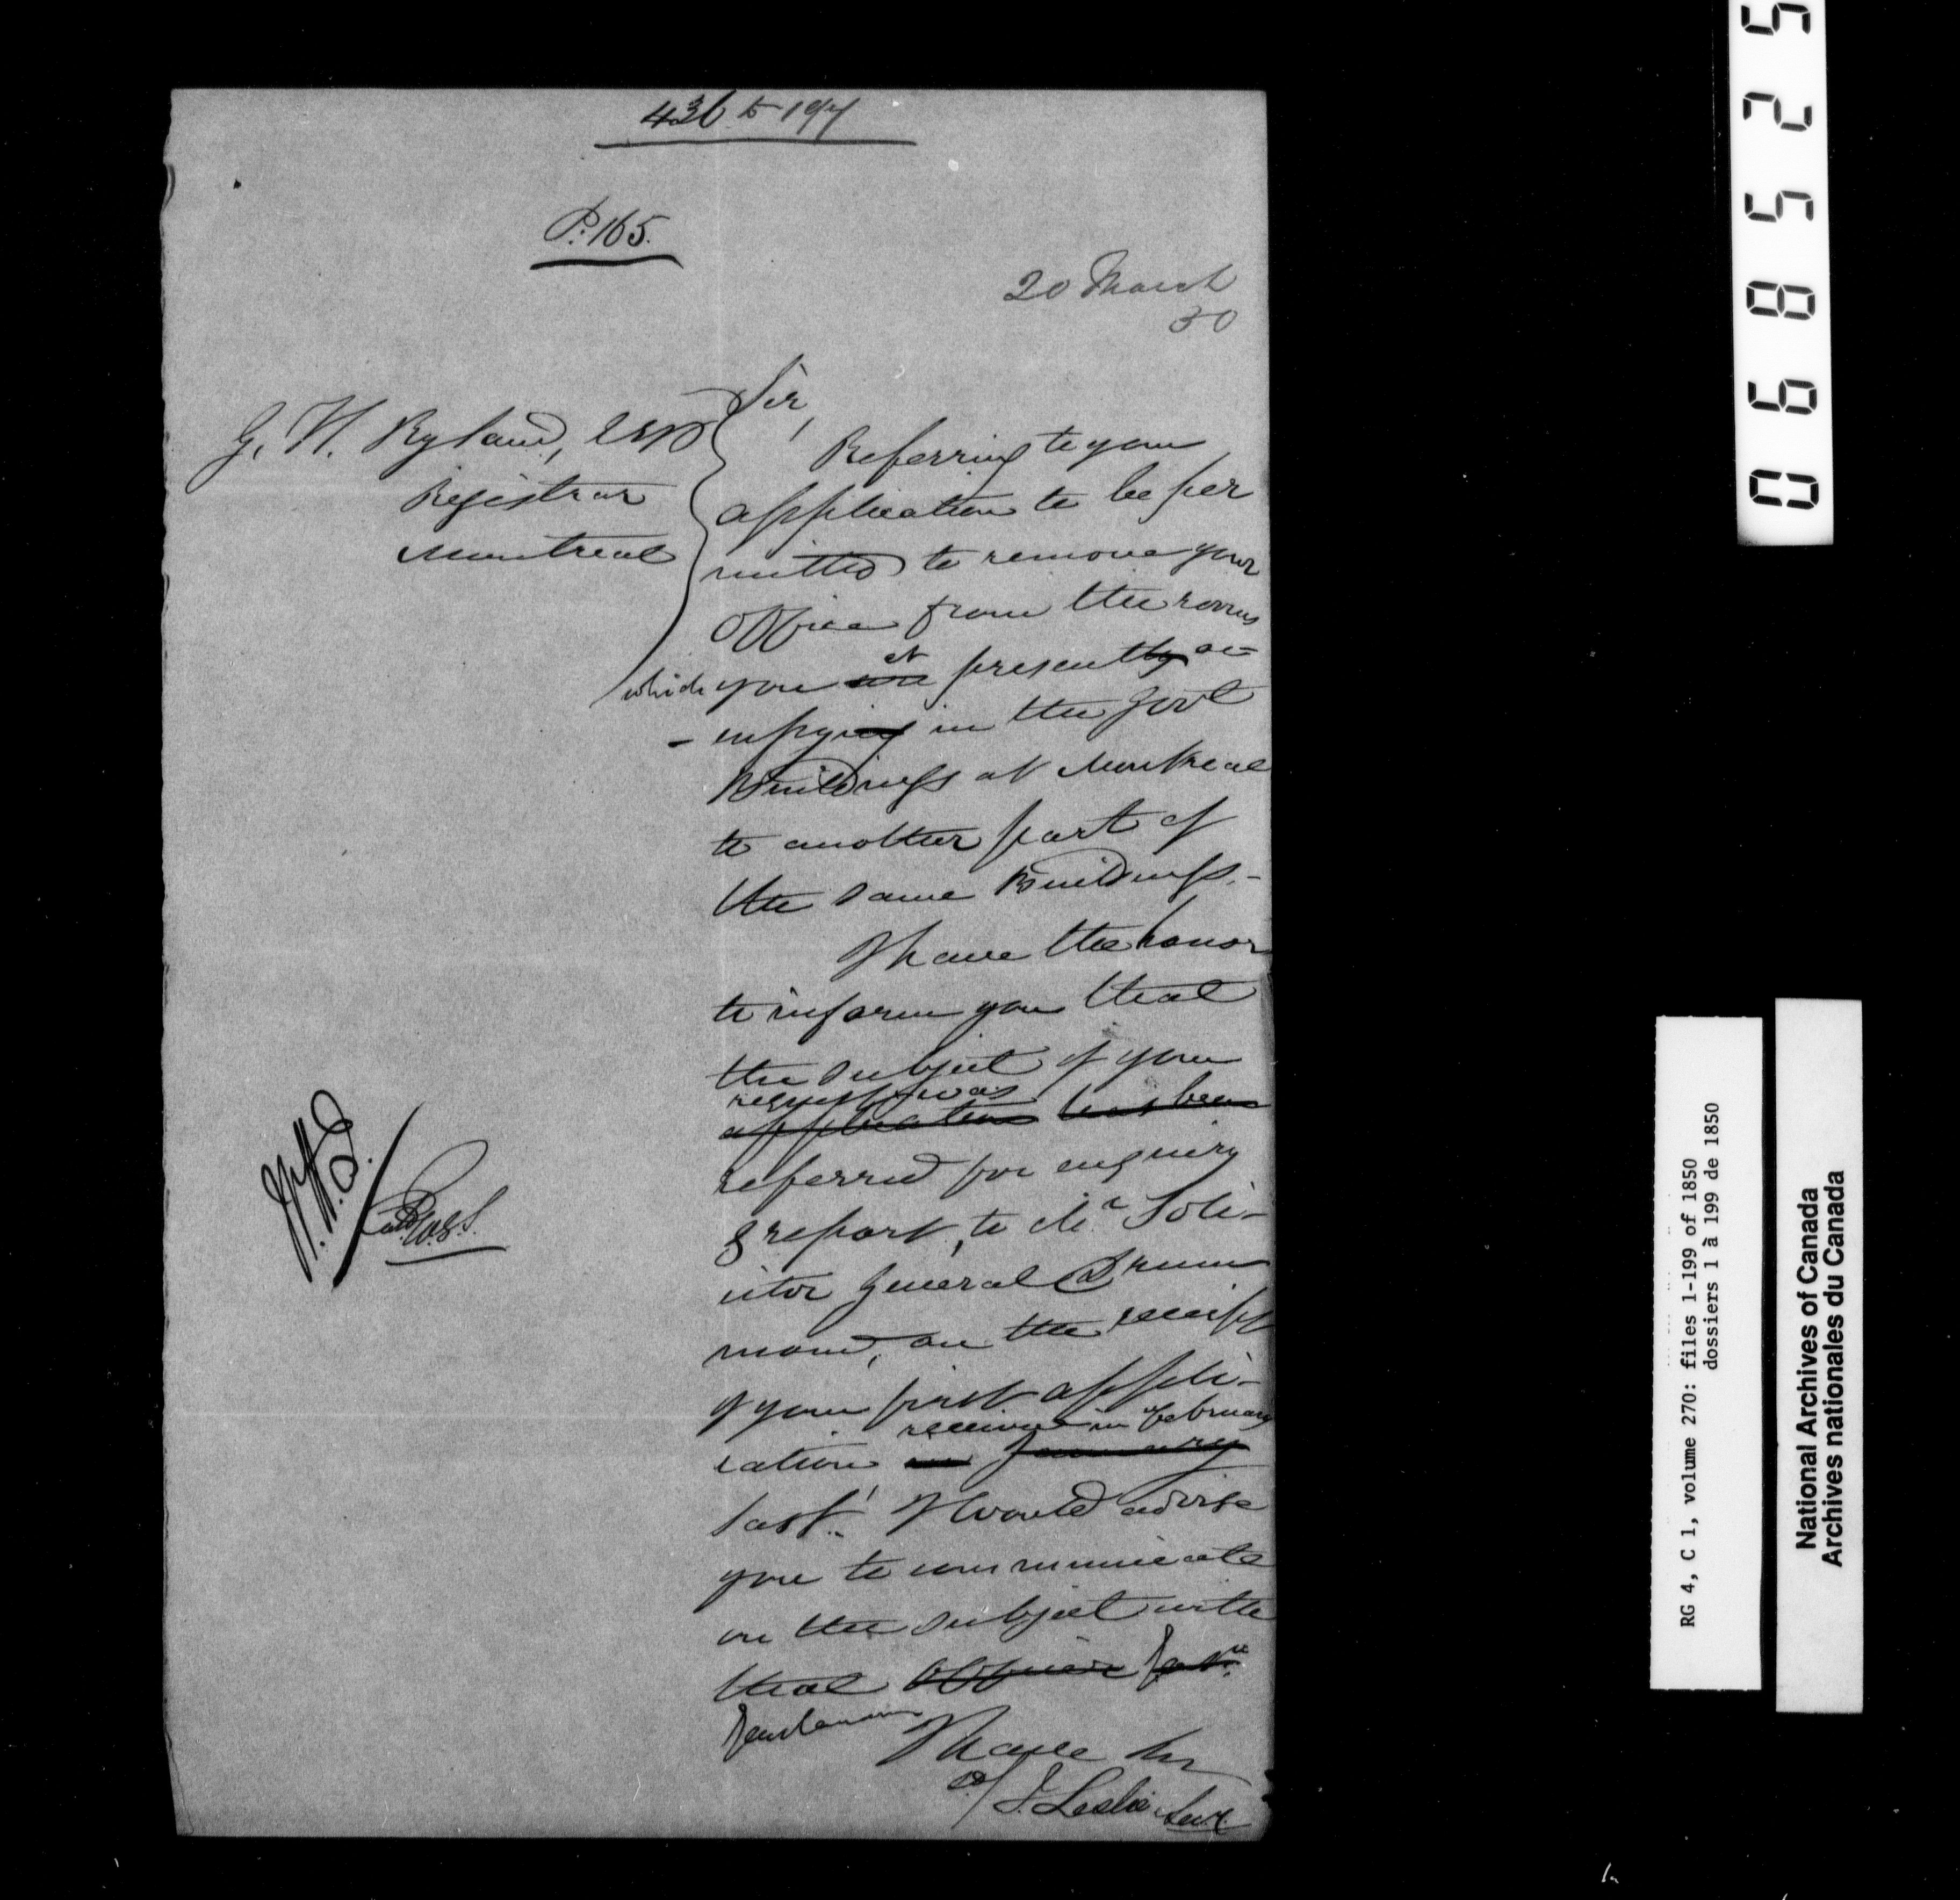 436 to 197
P. 165.
20 March
50
G. H. Ryland, Esq
Registrar
Montreal
Sir,
Referring to your
application to be per
mitted to remove your
Office from the rooms
which you are at presently oc=
-cupying in the Govt
Buildings at Montreal
to another part of
the same Buildings.-
I have the honor
to inform you that
the subject of your
request was
application has been
referred for enquiry
& report, to Mr Soli-
citor General Drum
mond, on the receipt
of your first appli-
received in February
cation in January
last. I would advise
you to communicate
on the subject with
that Officer
Gentleman
I have &c
J. Leslie Secy.
068525
RG 4, C 1, volume 270: files 1-199 of 1850
dossiers 1 à 199 de 1850
National Archives of Canada
Archives nationales du Canada